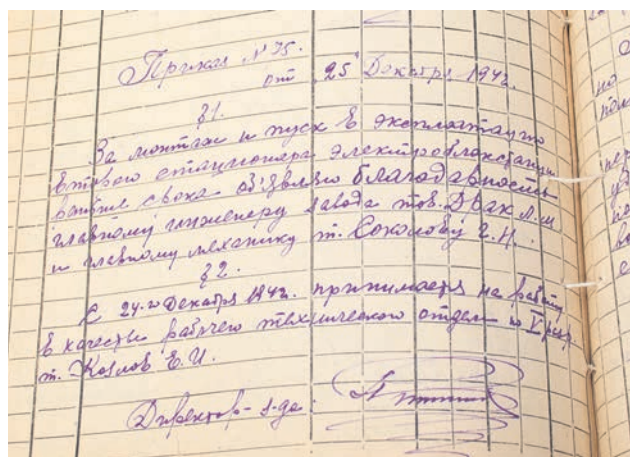 Приказ № 75.
от 25 Декабря 1942.
§1.
За монтаж и пуск в эксплоатацию
второго стационера
раньше срока об'являю благодарность
главному инженеру завода тов. Драк Л. М
и главному механику т. Соколову Г. Н.
§2.
С 24-го Декабря 1942. принимается на работу
в качестве рабочего технического отдела по V разр.
т. Козлов Е. И.
Директор з-да